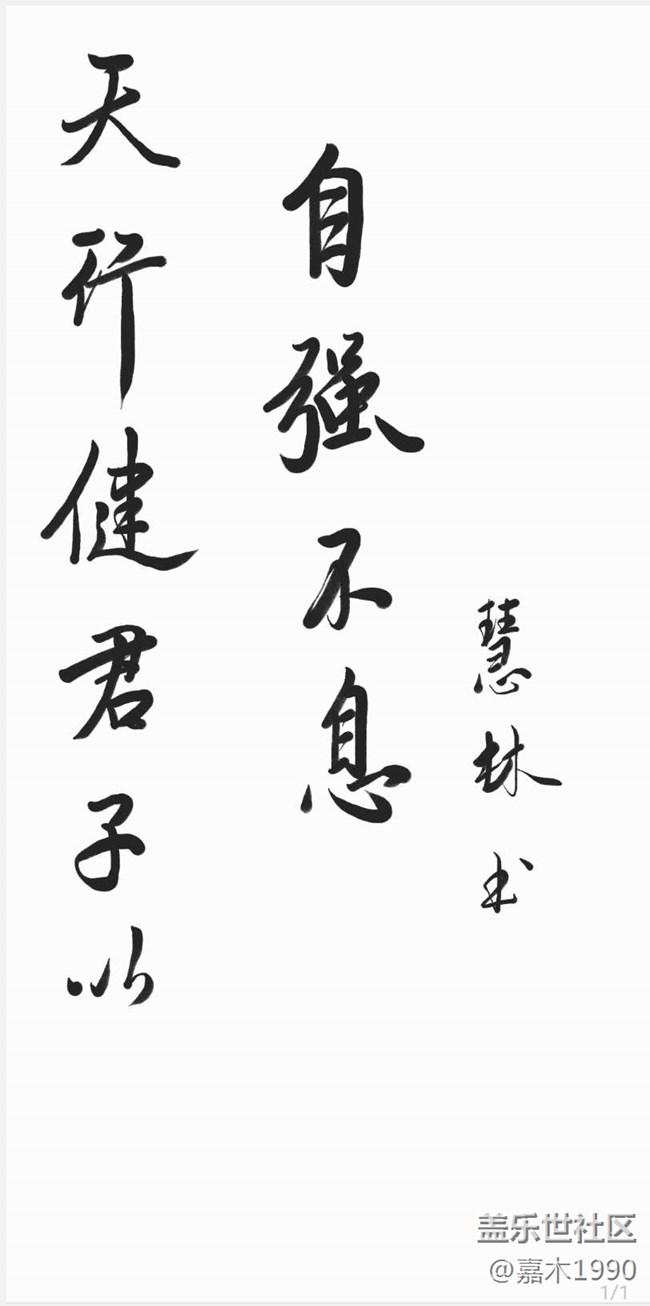 天行健君子以
自强不息
慧林书
盖乐世社区
@嘉木1990
1/1